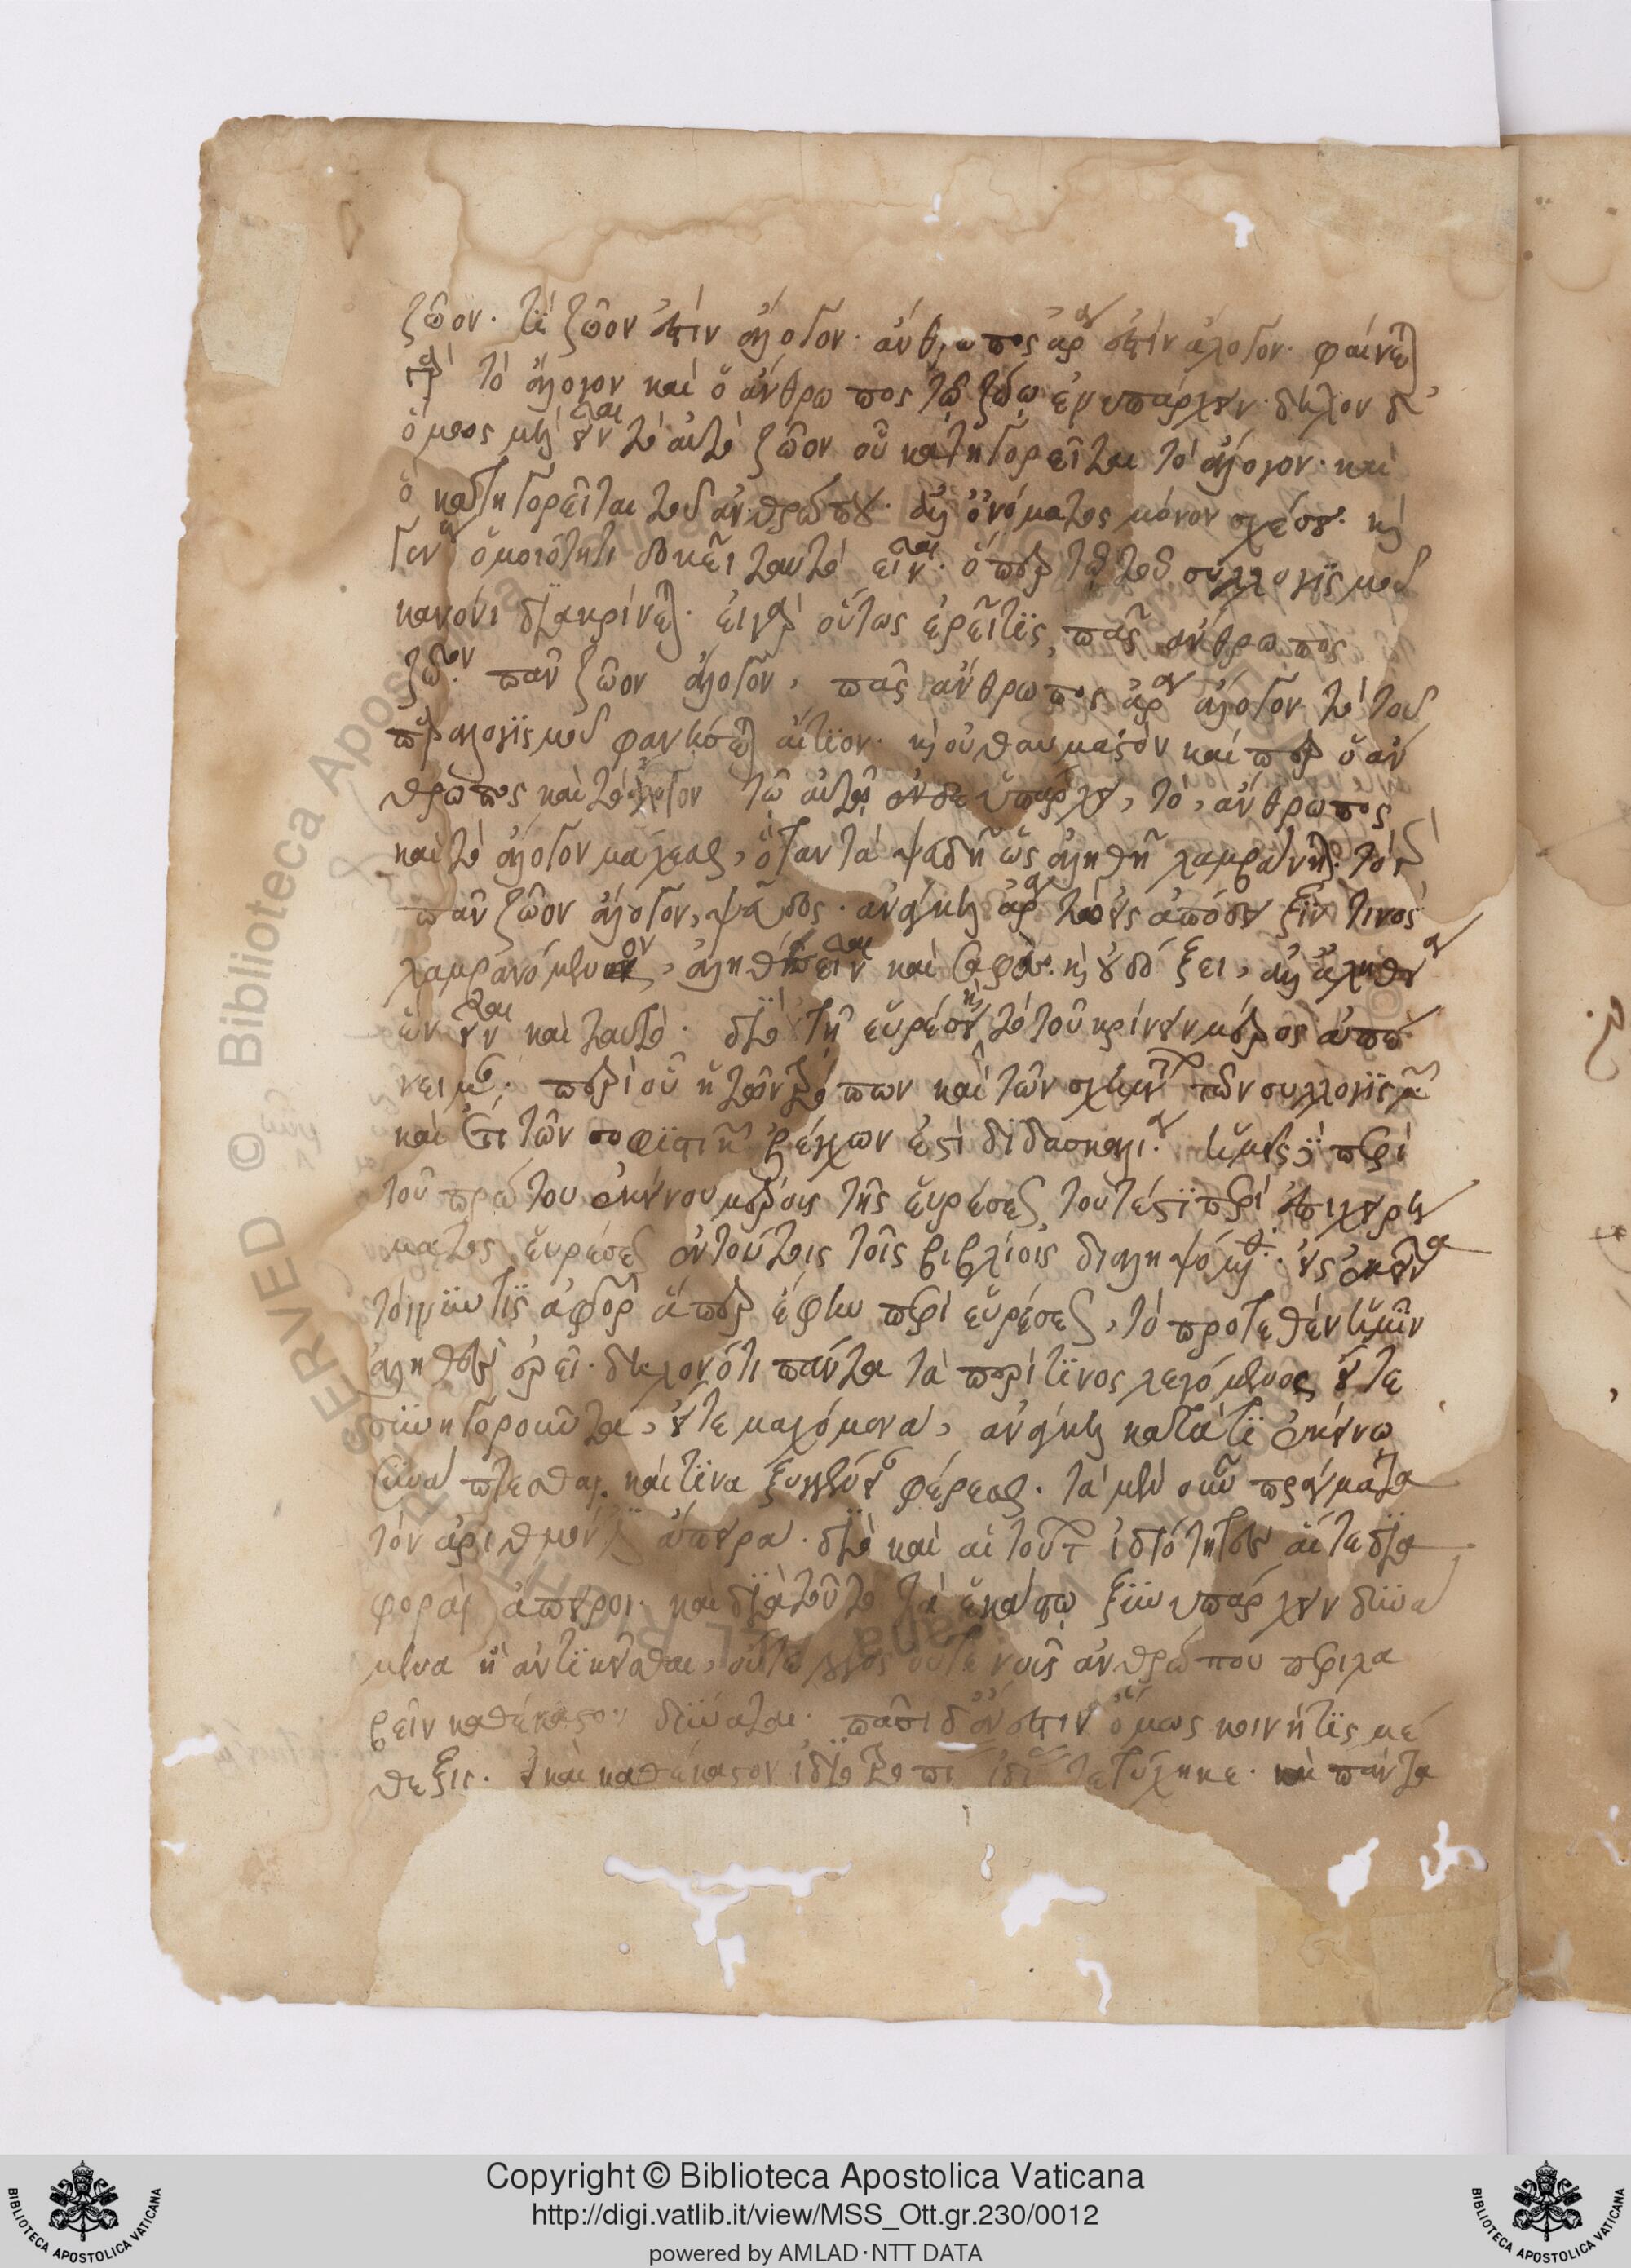 ζῶον. τὶ ζῶον ἐστὶν ἄλογον. ἄνθρωπος ἄρα ἐστὶν ἄλογον. φαίνεται
γὰρ τὸ ἄλογον καὶ ὁ ἄνθρωπος τῷ ζώῳ ἐνυπάρχειν. δῆλον δ'
ὅμως μὴ εἶναι τὸ αὐτὸ ζῶον οὗ κατηγορεῖται τὸ ἄλογον. καὶ
ὃ κατηγορεῖται τοῦ ἀνθρώπου. ἀλλ' ὀνόματος μόνον σχέσει. καὶ
ὁμοιότητι δοκεῖ ταυτὸ εἶναι. ὅπερ τῷ τοῦ συλλογισμοῦ
κανόνι διακρίνεται. εἰ γὰρ οὕτως ἐρεῖ τὶς, πᾶς ἄνθρωπος
ζῶον. πᾶν ζῶον ἄλογον, πᾶς ἄνθρωπος ἄρα ἄλογον. τὸ τοῦ
παραλογισμοῦ φανήσεται αἴτιον. καὶ οὐ θαυμαστὸν καίπερ ὁ ἄν
θρωπος καὶ τὸ ἄλογον τῷ αὐτῷ ὑπάρχει, τὸ, ἄνθρωπος
καὶ τὸ ἄλογον μάχεσθαι, ὅταν τὰ ψευδῆ ὡς ἀληθῆ λαμβάνηται. τὸ γὰρ
πᾶν ζῶον ἄλογον, ψεῦδος. ἀνάγκη ἄρα τὸ εἰς ἀπόδειξίν τινος
λαμβανόμενον, ἀληθὲς εἶναι καὶ σαφὲς. καὶ οὐ δόξει, ἀλλ' ἀληθείᾳ
ἓν εἶναι καὶ ταυτό. διὸ τῇ εὑρέσει καὶ τὸ τοῦ κρίνειν μέρος ἀπο
νείμας. περὶ οὗ ἡ τῶν τόπων καὶ τῶν σχημάτων τῶν συλλογισμῶν
καὶ ἐπὶ τῶν σοφιστικῶν ἐλέγχων ἐστὶ διδασκαλία. ἡμεῖς δὲ περὶ
τοῦ πρώτου ἐκείνου μέρους τῆς εὑρέσεως τουτέστι περὶ ἐπιχειρή
ματος εὑρέσεως ἐν τούτοις τοῖς βιβλίοις διαληψόμεθα. εἰς ἐκεῖνα
τοίνυν τὶς ἀφορῶν ἅπερ ἔφην περὶ εὑρέσεως, τὸ προτεθὲν ἡμῖν
ἀληθὲς ἐρεῖ. δηλονότι πάντα τὰ περί τινος λεγόμενα εἴτε
συνηγοροῦντα, εἴτε μαχόμενα, ἀνάγκη κατά τι ἐκείνῳ
συνάπτεσθαι. καί τινα ξυγγένειαν φέρεσθαι. τὰ μὲν οὖν πράγματα
τὸν ἀριθμὸν ἄπειρα. διὸ καὶ αἱ τούτων ἰδιότητες αἵ τε δια
φοραὶ ἄπειροι. καὶ διὰ τοῦτο τὰ ἑκάστῳ ξυνυπάρχειν δυνά
μενα ἢ ἀντικεῖσθαι, οὔτε λόγος οὔτε νοῦς ἀνθρώπου περιλα
βεῖν καθέκαστον δύναται. πᾶσι δ' οὖν ἐστὶν ὅμως κοινή τις μέ
θεξις. εἰ καὶ καθέκαστον ἰδιότητι ἰδίᾳ τετύχηκε. καὶ πάντα
Copyright © Biblioteca Apostolica Vaticana
http://digi.vatlib.it/view/MSS_Ott.gr.230/0012
powered by AMLAD·NTT DATA